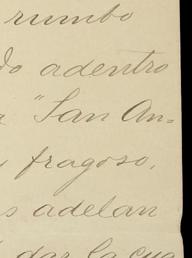 rumbo
do adentro
"San An-
fragoso,
s adelan
dar la cua